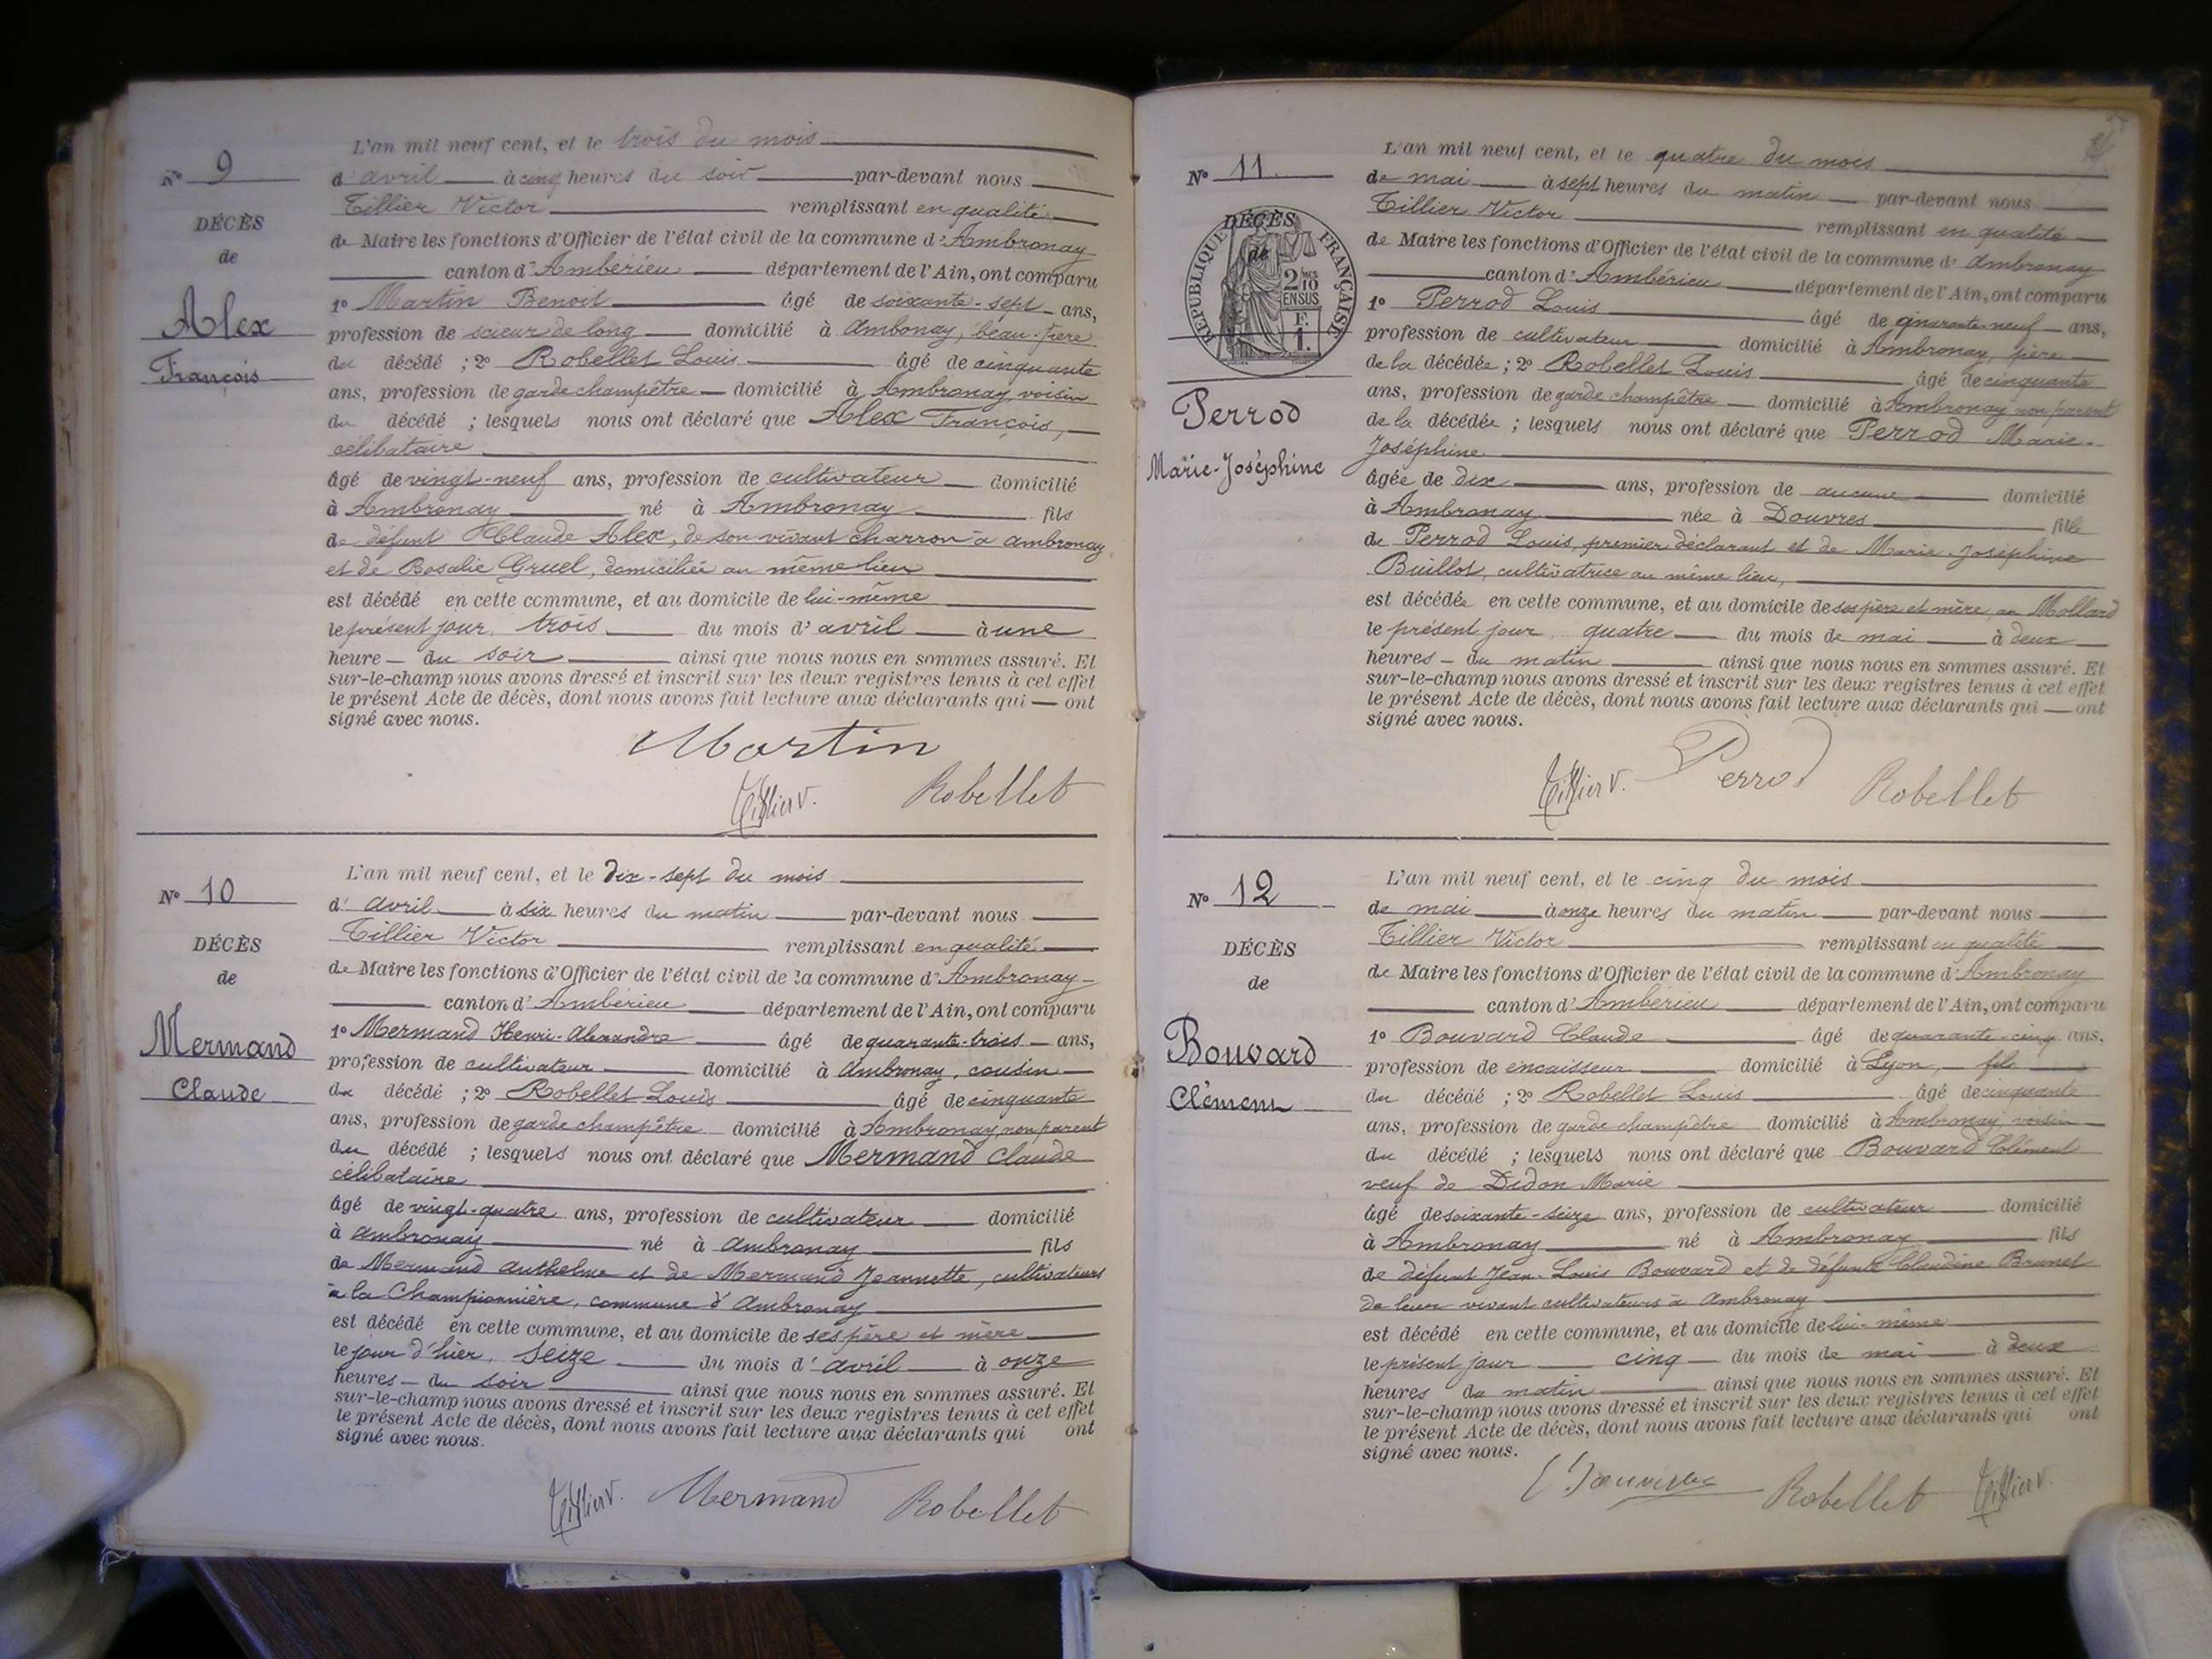 N° 9
DÉCÈS
de
Alex
François
L'an mil neuf cent, et le trois du mois
d'avril à cinq heures du soir par-devant nous
Tillier Victor remplissant en qualité
de Maire les fonctions d'Officier de l'état civil de la commune d'Ambronay
canton d'Ambérieu département de l'Ain, ont comparu
1° Martin Benoit âgé de soixante-sept ans,
profession de scieur de long domicilié à Ambonay, beau-père
du décédé ; 2° Robellet Louis âgé de cinquante
ans, profession de garde champêtre domicilié à Ambronay, voisin
du décédé ; lesquels nous ont déclaré que Alex François,
célibataire
âgé de vingt-neuf ans, profession de cultivateur domicilié
à Ambronay né à Ambronay fils
de défunt Claude Alex, de son vivant charron à ambronay
et de Rosalie Gruel, domiciliée au même lieu
est décédé en cette commune, et au domicile de lui-même
le présent jour, trois du mois d'avril à une
heure du soir ainsi que nous nous en sommes assuré. Et
sur-le-champ nous avons dressé et inscrit sur les deux registres tenus à cet effet
le présent Acte de décès, dont nous avons fait lecture aux déclarants qui ont
signé avec nous.
Martin
Tillier V. Robellet
N° 10
DÉCÈS
de
Mermand
Claude
L'an mil neuf cent, et le dix-sept du mois
d'avril à six heures du matin par-devant nous
Tillier Victor remplissant en qualité
de Maire les fonctions d'Officier de l'état civil de la commune d'Ambronay
canton d'Ambérieu département de l'Ain, ont comparu
1° Mermand Henri-Alexandre âgé de quarante-trois ans,
profession de cultivateur domicilié à Ambronay, cousin
du décédé ; 2° Robellet Louis âgé de cinquante
ans, profession de garde champêtre domicilié à Ambronay, non parent
du décédé ; lesquels nous ont déclaré que Mermand Claude
célibataire
âgé de vingt-quatre ans, profession de cultivateur domicilié
à ambronay né à ambronay fils
de Mermand Anthelme et de Mermand Jeannette, cultivateurs
à la Championnière, commune d'Ambronay
est décédé en cette commune, et au domicile de ses père et mère
le jour d'hier, seize du mois d'avril à onze
heures du soir ainsi que nous nous en sommes assuré. Et
sur-le-champ nous avons dressé et inscrit sur les deux registres tenus à cet effet
le présent Acte de décès, dont nous avons fait lecture aux déclarants qui ont
signé avec nous.
Tillier V. Mermand Robellet
N° 11
DÉCÈS
de
RÉPUBLIQUE FRANÇAISE
2/10 EN SUS
F. 1.
Perrod
Marie-Joséphine
L'an mil neuf cent, et le quatre du mois
de mai à sept heures du matin par-devant nous
Tillier Victor remplissant en qualité
de Maire les fonctions d'Officier de l'état civil de la commune d'Ambronay
canton d'Ambérieu département de l'Ain, ont comparu
1° Perrod Louis âgé de quarante-neuf ans,
profession de cultivateur domicilié à Ambronay, père
de la décédée ; 2° Robellet Louis âgé de cinquante
ans, profession de garde champêtre domicilié à Ambronay non parent
de la décédée ; lesquels nous ont déclaré que Perrod Marie-
Joséphine
âgée de dix ans, profession de aucune domicilié
à Ambronay née à Douvres fille
de Perrod Louis, premier déclarant et de Marie-Joséphine
Buillot, cultivatrice au même lieu,
est décédée en cette commune, et au domicile de ses père et mère, au Mollard
le présent jour, quatre du mois de mai à deux
heures du matin ainsi que nous nous en sommes assuré. Et
sur-le-champ nous avons dressé et inscrit sur les deux registres tenus à cet effet
le présent Acte de décès, dont nous avons fait lecture aux déclarants qui ont
signé avec nous.
Tillier V. Perrod Robellet
N° 12
DÉCÈS
de
Bouvard
Clément
L'an mil neuf cent, et le cinq du mois
de mai à onze heures du matin par-devant nous
Tillier Victor remplissant en qualité
de Maire les fonctions d'Officier de l'état civil de la commune d'Ambronay
canton d'Ambérieu département de l'Ain, ont comparu
1° Bouvard Claude âgé de quarante-cinq ans,
profession de encaisseur domicilié à Lyon, fils
du décédé ; 2° Robellet Louis âgé de cinquante
ans, profession de garde champêtre domicilié à Ambronay, voisin
du décédé ; lesquels nous ont déclaré que Bouvard Clément
veuf de Didon Marie
âgé de soixante-seize ans, profession de cultivateur domicilié
à Ambronay né à Ambronay fils
de défunt Jean-Louis Bouvard et de défunte Claudine Brunet
de leur vivant cultivateurs à Ambronay
est décédé en cette commune, et au domicile de lui-même
le présent jour cinq du mois de mai à deux
heures du matin ainsi que nous nous en sommes assuré. Et
sur-le-champ nous avons dressé et inscrit sur les deux registres tenus à cet effet
le présent Acte de décès, dont nous avons fait lecture aux déclarants qui ont
signé avec nous.
Robellet Tillier V.